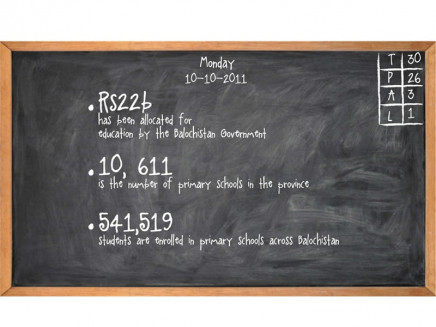 Monday
10-10-2011
T 30
P 26
A 3
L 1
• Rs22b
has been allocated for
education by the Balochistan Government
• 10, 611
is the number of primary schools in the province
• 541,519
students are enrolled in primary schools across Balochistan